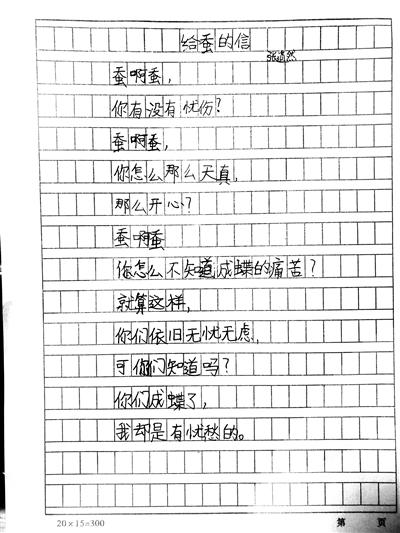 给蚕的信
蚕啊蚕，
你有没有忧伤？
蚕啊蚕，
你怎么那么天真，
那么开心？
蚕啊蚕
你怎么不知道成蝶的痛苦？
就算这样，
你们依旧无忧无虑，
可你们知道吗？
你们成蝶了，
我却是有忧愁的。
20×15=300
第 页